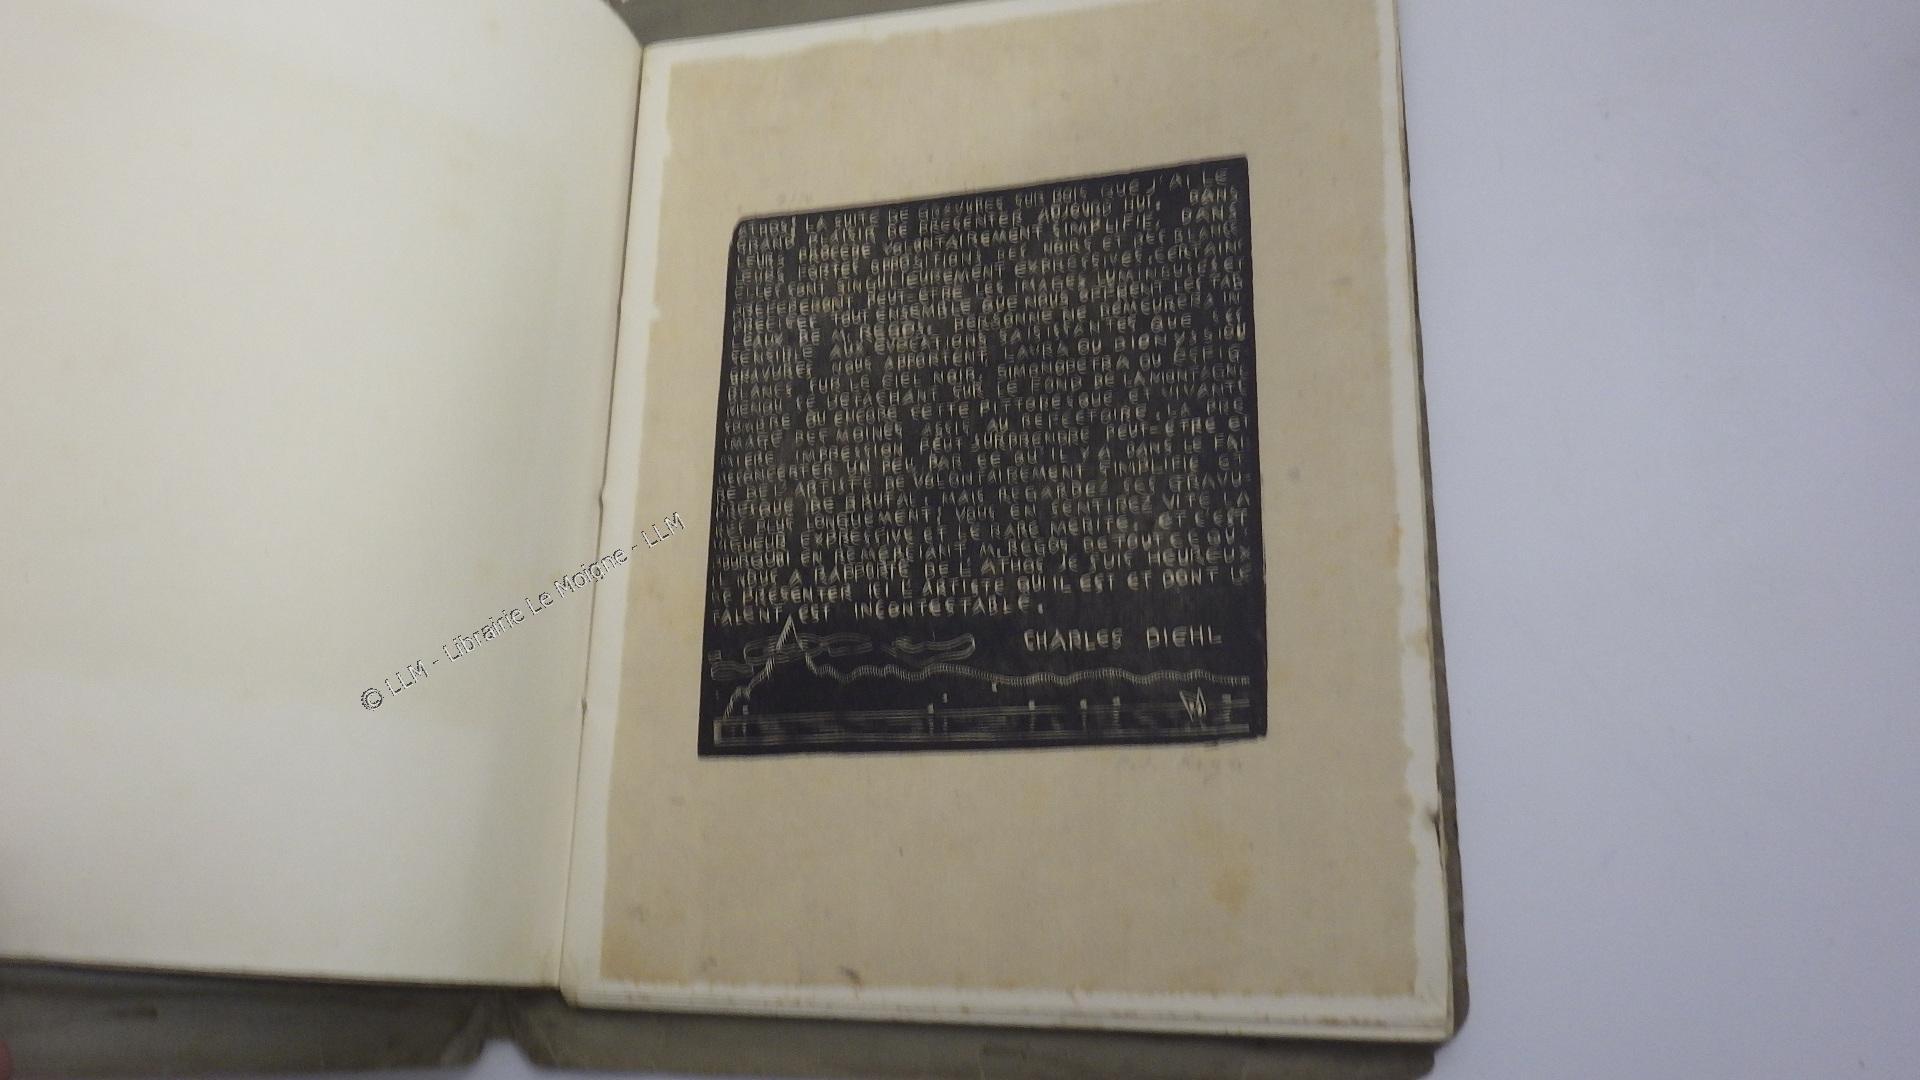 ATHOS LA SUITE DE GRAVURES SUR BOIS QUE J'AI LE
GRAND PLAISIR DE PRESENTER AUJOURD'HUI. DANS
LEUR VOLONTAIREMENT SIMPLIFIE, DANS
LEURS FORTES OPPOSITIONS DES NOIRS ET DES BLANCS
ELLES SONT SINGULIEREMENT EXPRESSIVES. CERTAINS
PEUT-ETRE LES IMAGES LUMINEUSES
TOUT ENSEMBLE QUE NOUS OFFRENT LES
M. REGOS. PERSONNE NE DEMEURERA IN
SENSIBLE AUX EVOCATIONS SAISISSANTES QUE
GRAVURES NOUS APPORTENT LAVRA OU DIONYSIOU
BLANCS SUR LE CIEL NOIR, SIMONOPETRA OU
SE DETACHANT SUR LE FOND DE LA MONTAGNE
OU ENCORE CETTE PITTORESQUE ET VIVANTE
IMAGE DES MOINES ASSIS AU REFECTOIRE. LA PRE
MIERE IMPRESSION PEUT SURPRENDRE PEUT-ETRE ET
DECONCERTER UN PEU PAR CE QU'IL Y A DANS LE FAI
RE DE L'ARTISTE DE VOLONTAIREMENT SIMPLIFIE ET
PRESQUE DE BRUTAL; MAIS REGARDEZ CES GRAVU
RES PLUS LONGUEMENT, VOUS EN SENTIREZ VITE LA
VIGUEUR EXPRESSIVE ET LE RARE MERITE. ET C'EST
POURQUOI EN REMERCIANT M. REGOS DE TOUT CE QU'
IL NOUS A RAPPORTE DE L'ATHOS JE SUIS HEUREUX
DE PRESENTER ICI L'ARTISTE QU'IL EST ET DONT LE
TALENT EST INCONTESTABLE.
CHARLES DIEHL
© LLM - Librairie Le Moigne - LLM